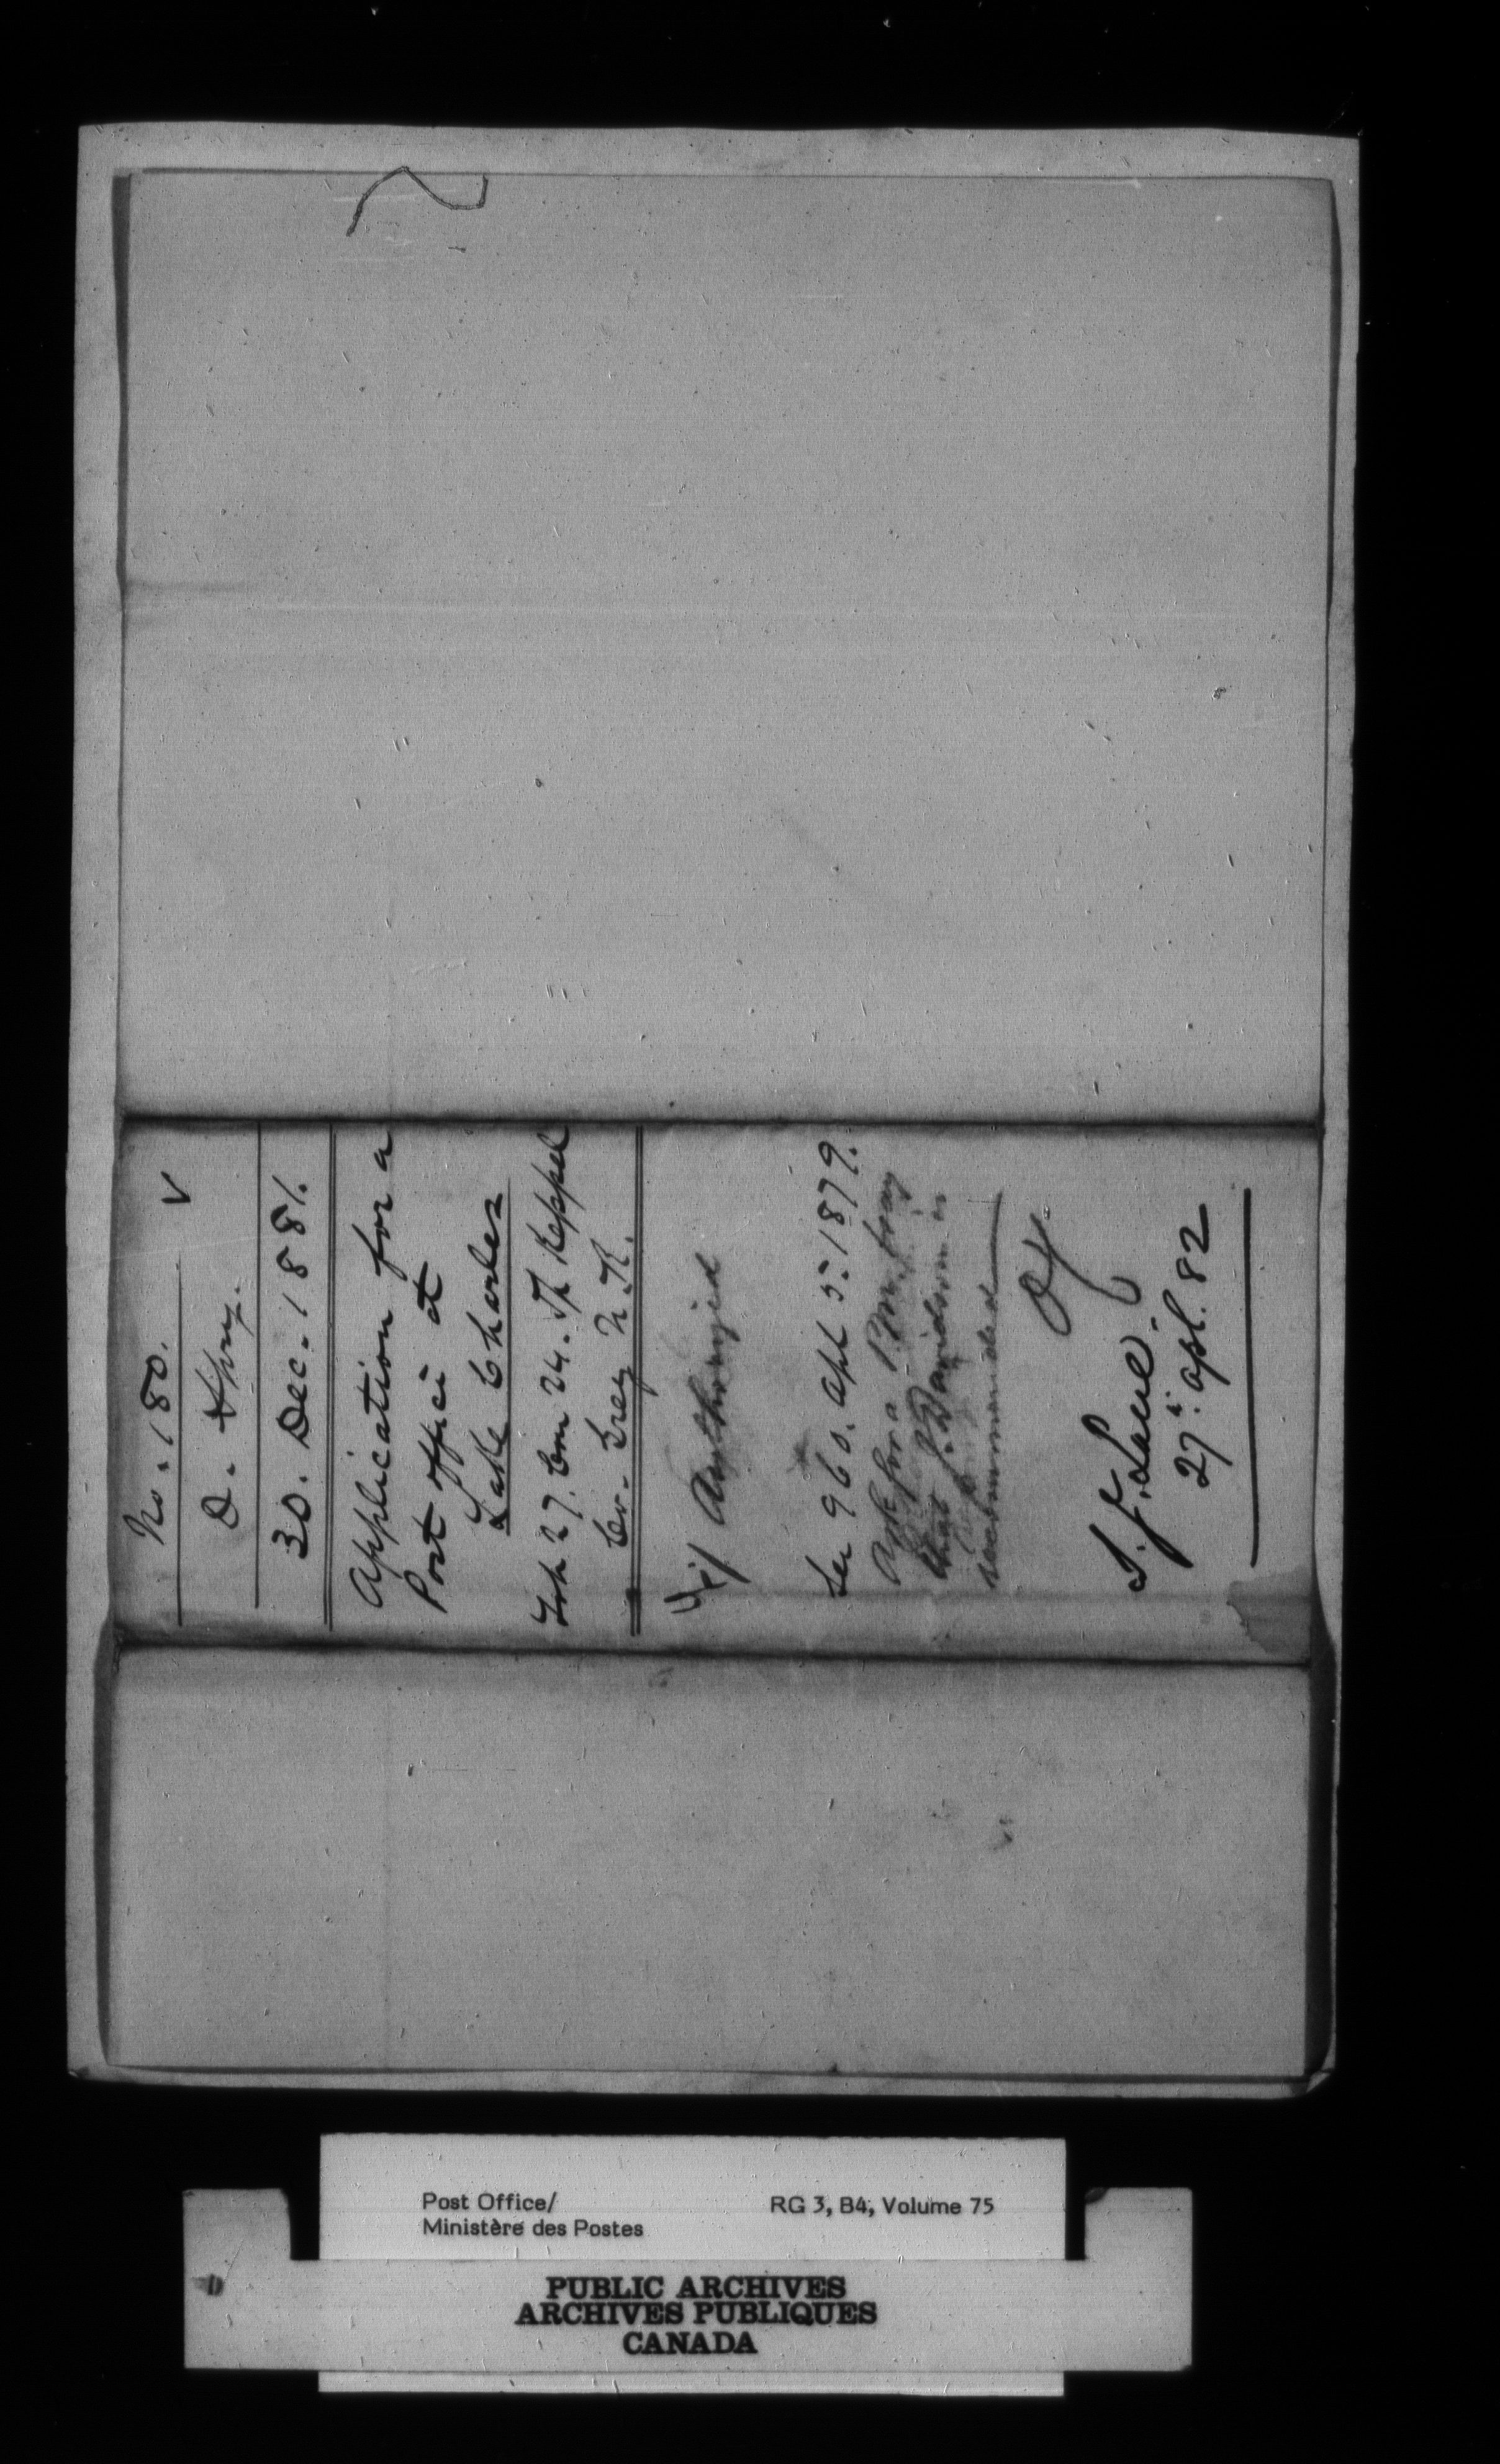 No. 180. V
D. Spry.
30. Dec. 1881.
Application for a
Post office at
Lake Charles
Lot 27. Con 24. Tp Keppel
Co. Grey N.R.
Authorized
See 960. Apl 5. 1879.
Ask for a P.M. &
that J. Davidson is
recommended
S. J. Lane.
27. apl. 82
Post Office/
Ministère des Postes
RG 3, B4, Volume 75
PUBLIC ARCHIVES
ARCHIVES PUBLIQUES
CANADA